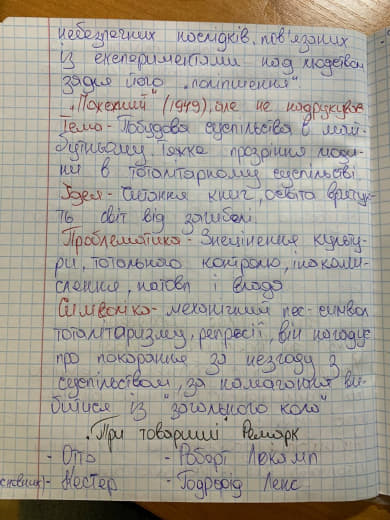 небезпечних наслідків, пов'язаних
із експериментами над людством
задля його „поліпшення".
„Пожежний" (1949), але не надрукував
Тема - Побудова суспільства в май-
бутньому, тяжке прозріння люди-
ни в тоталітарному суспільстві
Ідея - Читання книг, освіта врятує
світ від загибелі
Проблематика - Знецінення культу-
ри, тотального контролю, інакоми-
слення, натовп і влада
Символіка - механічний пес - символ
тоталітаризму, репресії, він нагадує
про покарання за незгоду з
суспільством, за намагання ви-
битися із "загального кола"
„Три товариші" Ремарк
- Отто - Роберт Локамп
- Кестер - Годфрід Ленс